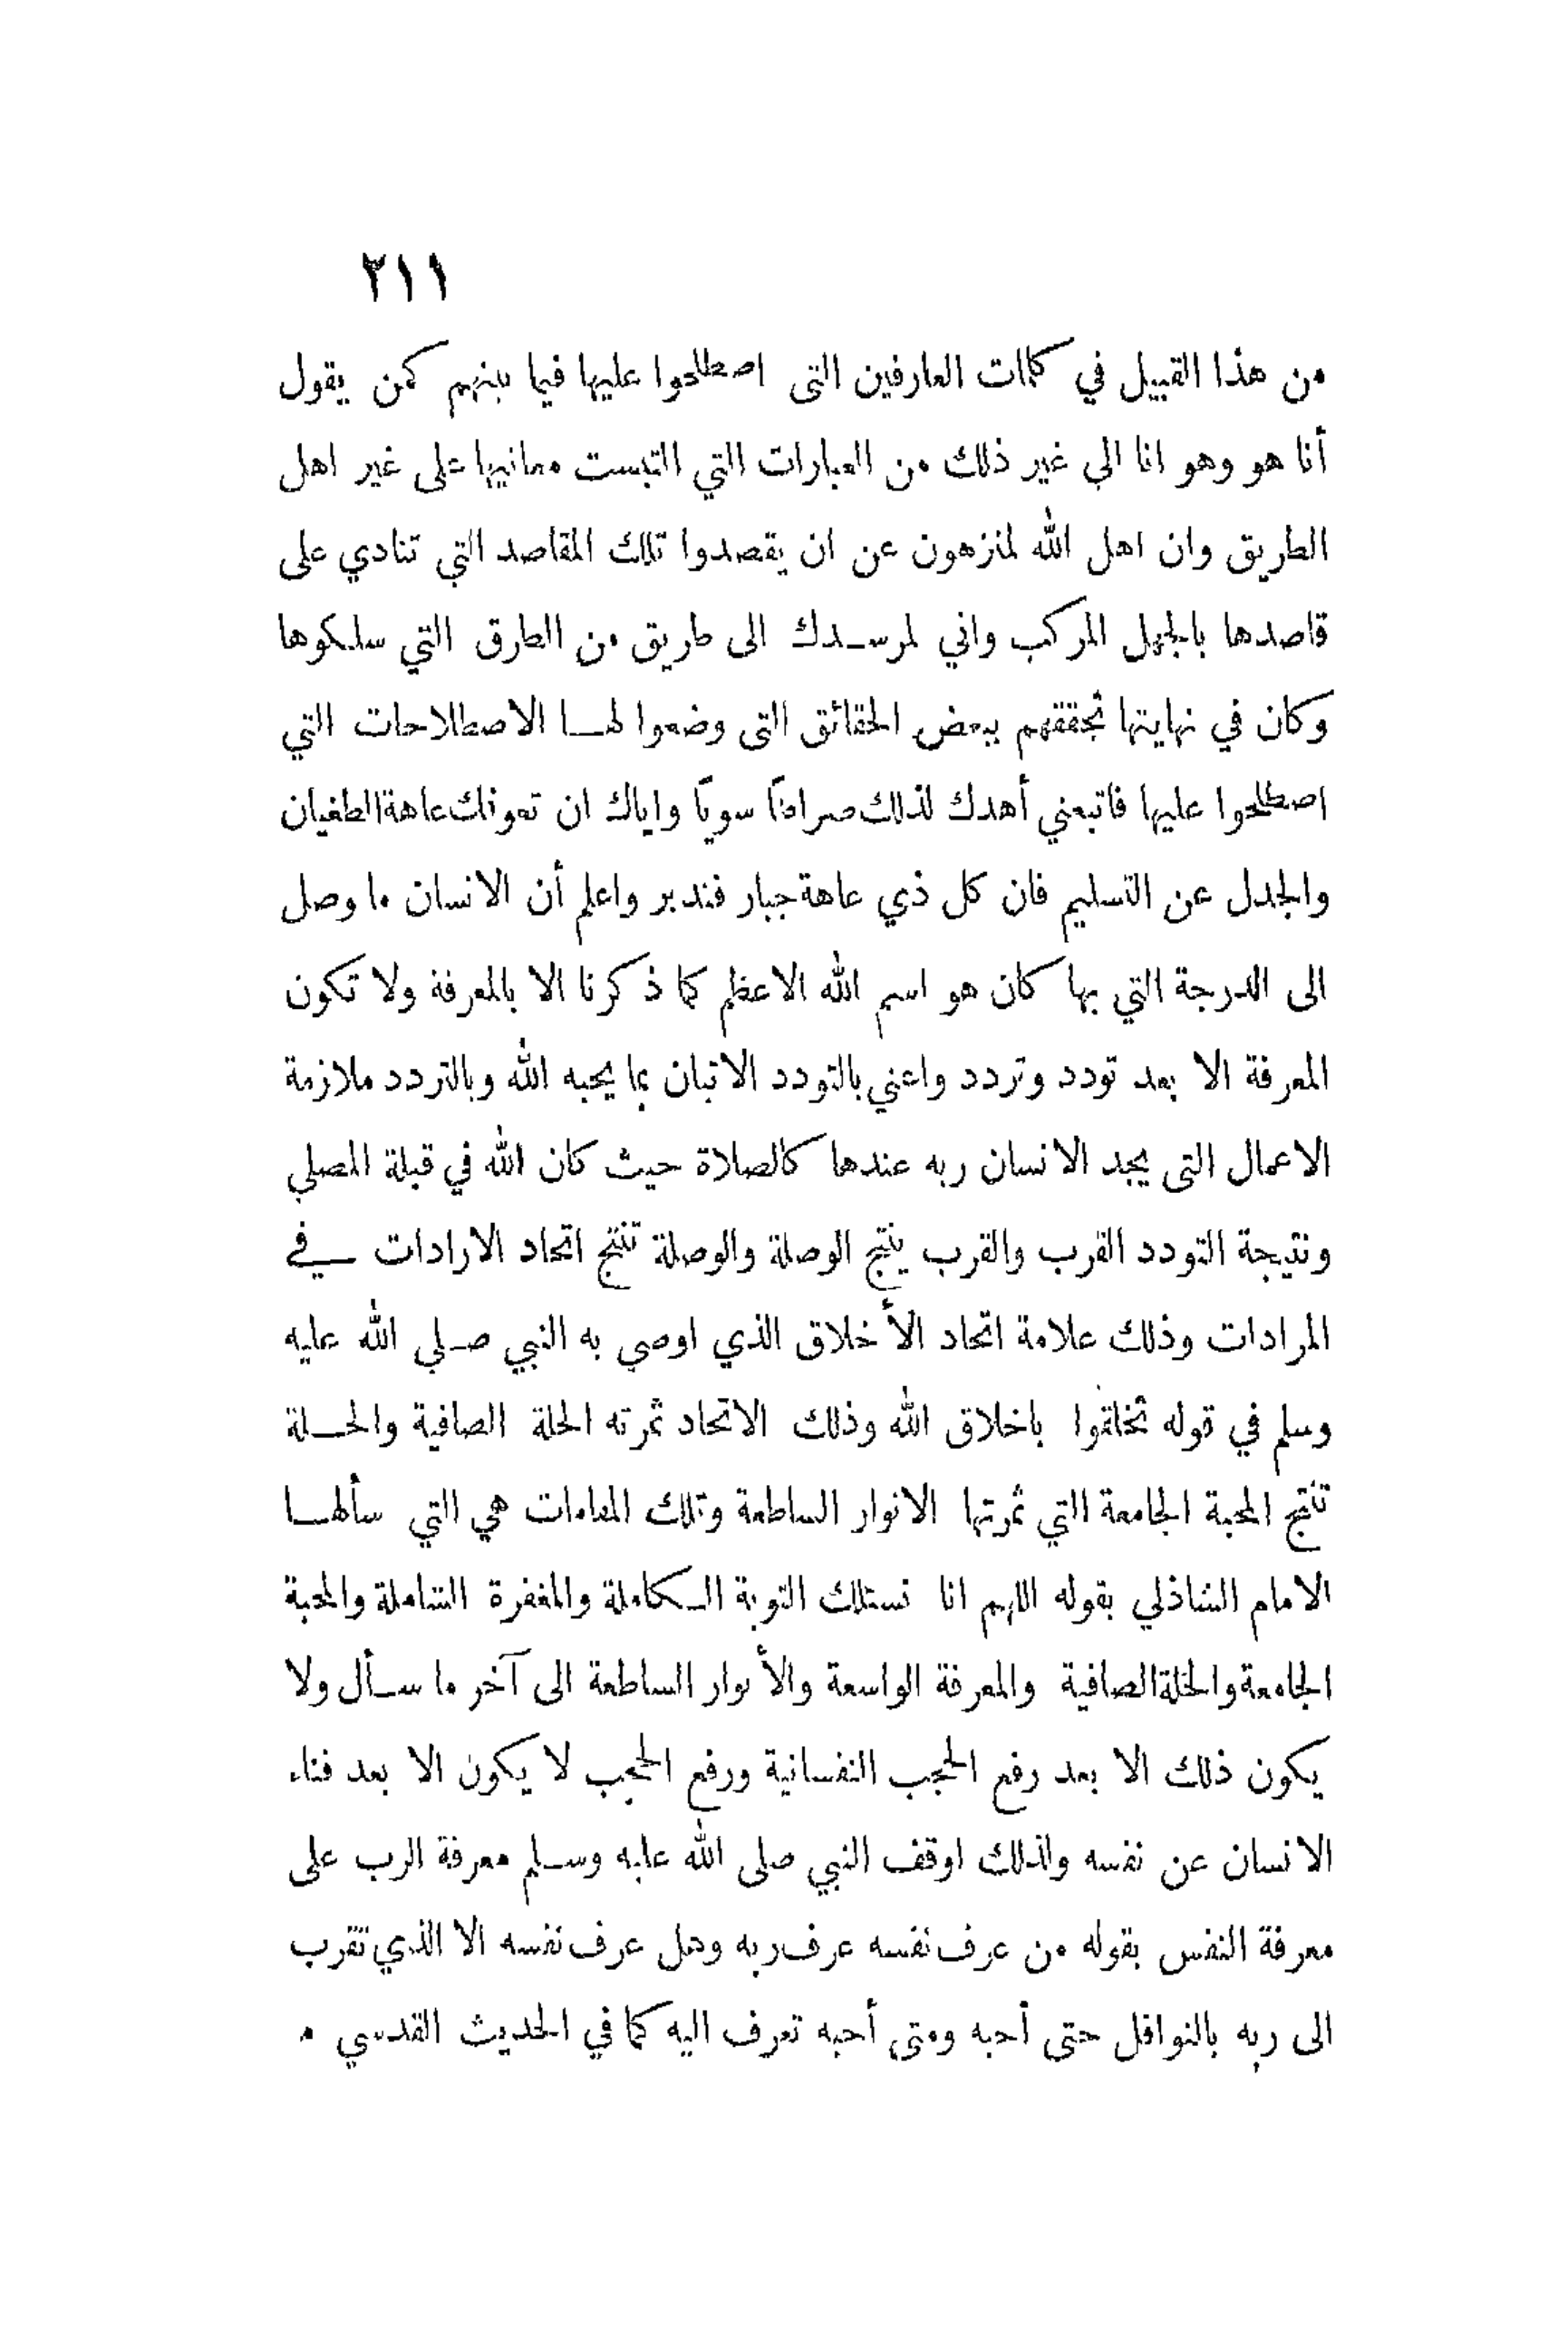 ٢١١
من هذا القبيل في كلمات العارفين التى اصطلحوا عليها فيما بينهم كمن يقول
أنا هو وهو انا الي غير ذلك من العبارات التي التبست معانيها على غير اهل
الطريق وان اهل الله لمنزهون عن ان يقصدوا تلك المقاصد التي تنادي على
قاصدها بالجهل المركب واني لمرسدك الى طريق من الطرق التي سلكوها
وكان في نهايتها تحققهم ببعض الحقائق التى وضعوا لها الاصطلاحات التي
اصطلحوا عليها فاتبعني أهدك لذلك صراطًا سويًا واياك ان تعوقك عاهة الطغيان
والجدل عن التسليم فان كل ذي عاهة جبار فتدبر واعلم أن الانسان ما وصل
الى الدرجة التي بها كان هو اسم الله الاعظم كما ذكرنا الا بالمعرفة ولا تكون
المعرفة الا بعد تودد وتردد واعني بالتودد الاتيان بما يحبه الله وبالتردد ملازمة
الاعمال التى يجد الانسان ربه عندها كالصلاة حيث كان الله في قبلة المصلي
ونتيجة التودد القرب والقرب ينتج الوصلة والوصلة تنتج اتحاد الارادات في
المرادات وذلك علامة اتحاد الأخلاق الذي اوصي به النبي صلي الله عليه
وسلم في قوله تخلقوا باخلاق الله وذلك الاتحاد ثمرته الخلة الصافية والخلة
تنتج المحبة الجامعة التي ثمرتها الانوار الساطعة وتلك المقامات هي التي سألها
الامام الشاذلي بقوله اللهم انا نسئلك التوبة الكاملة والمغفرة الشاملة والمحبة
الجامعة والخلة الصافية والمعرفة الواسعة والأنوار الساطعة الى آخر ما سأل ولا
يكون ذلك الا بعد رفع الحجب النفسانية ورفع الحجب لا يكون الا بعد فناء
الانسان عن نفسه ولذلك اوقف النبي صلى الله عليه وسلم معرفة الرب على
معرفة النفس بقوله من عرف نفسه عرف ربه وهل عرف نفسه الا الذي تقرب
الى ربه بالنوافل حتى أحبه ومتى أحبه تعرف اليه كما في الحديث القدسي .